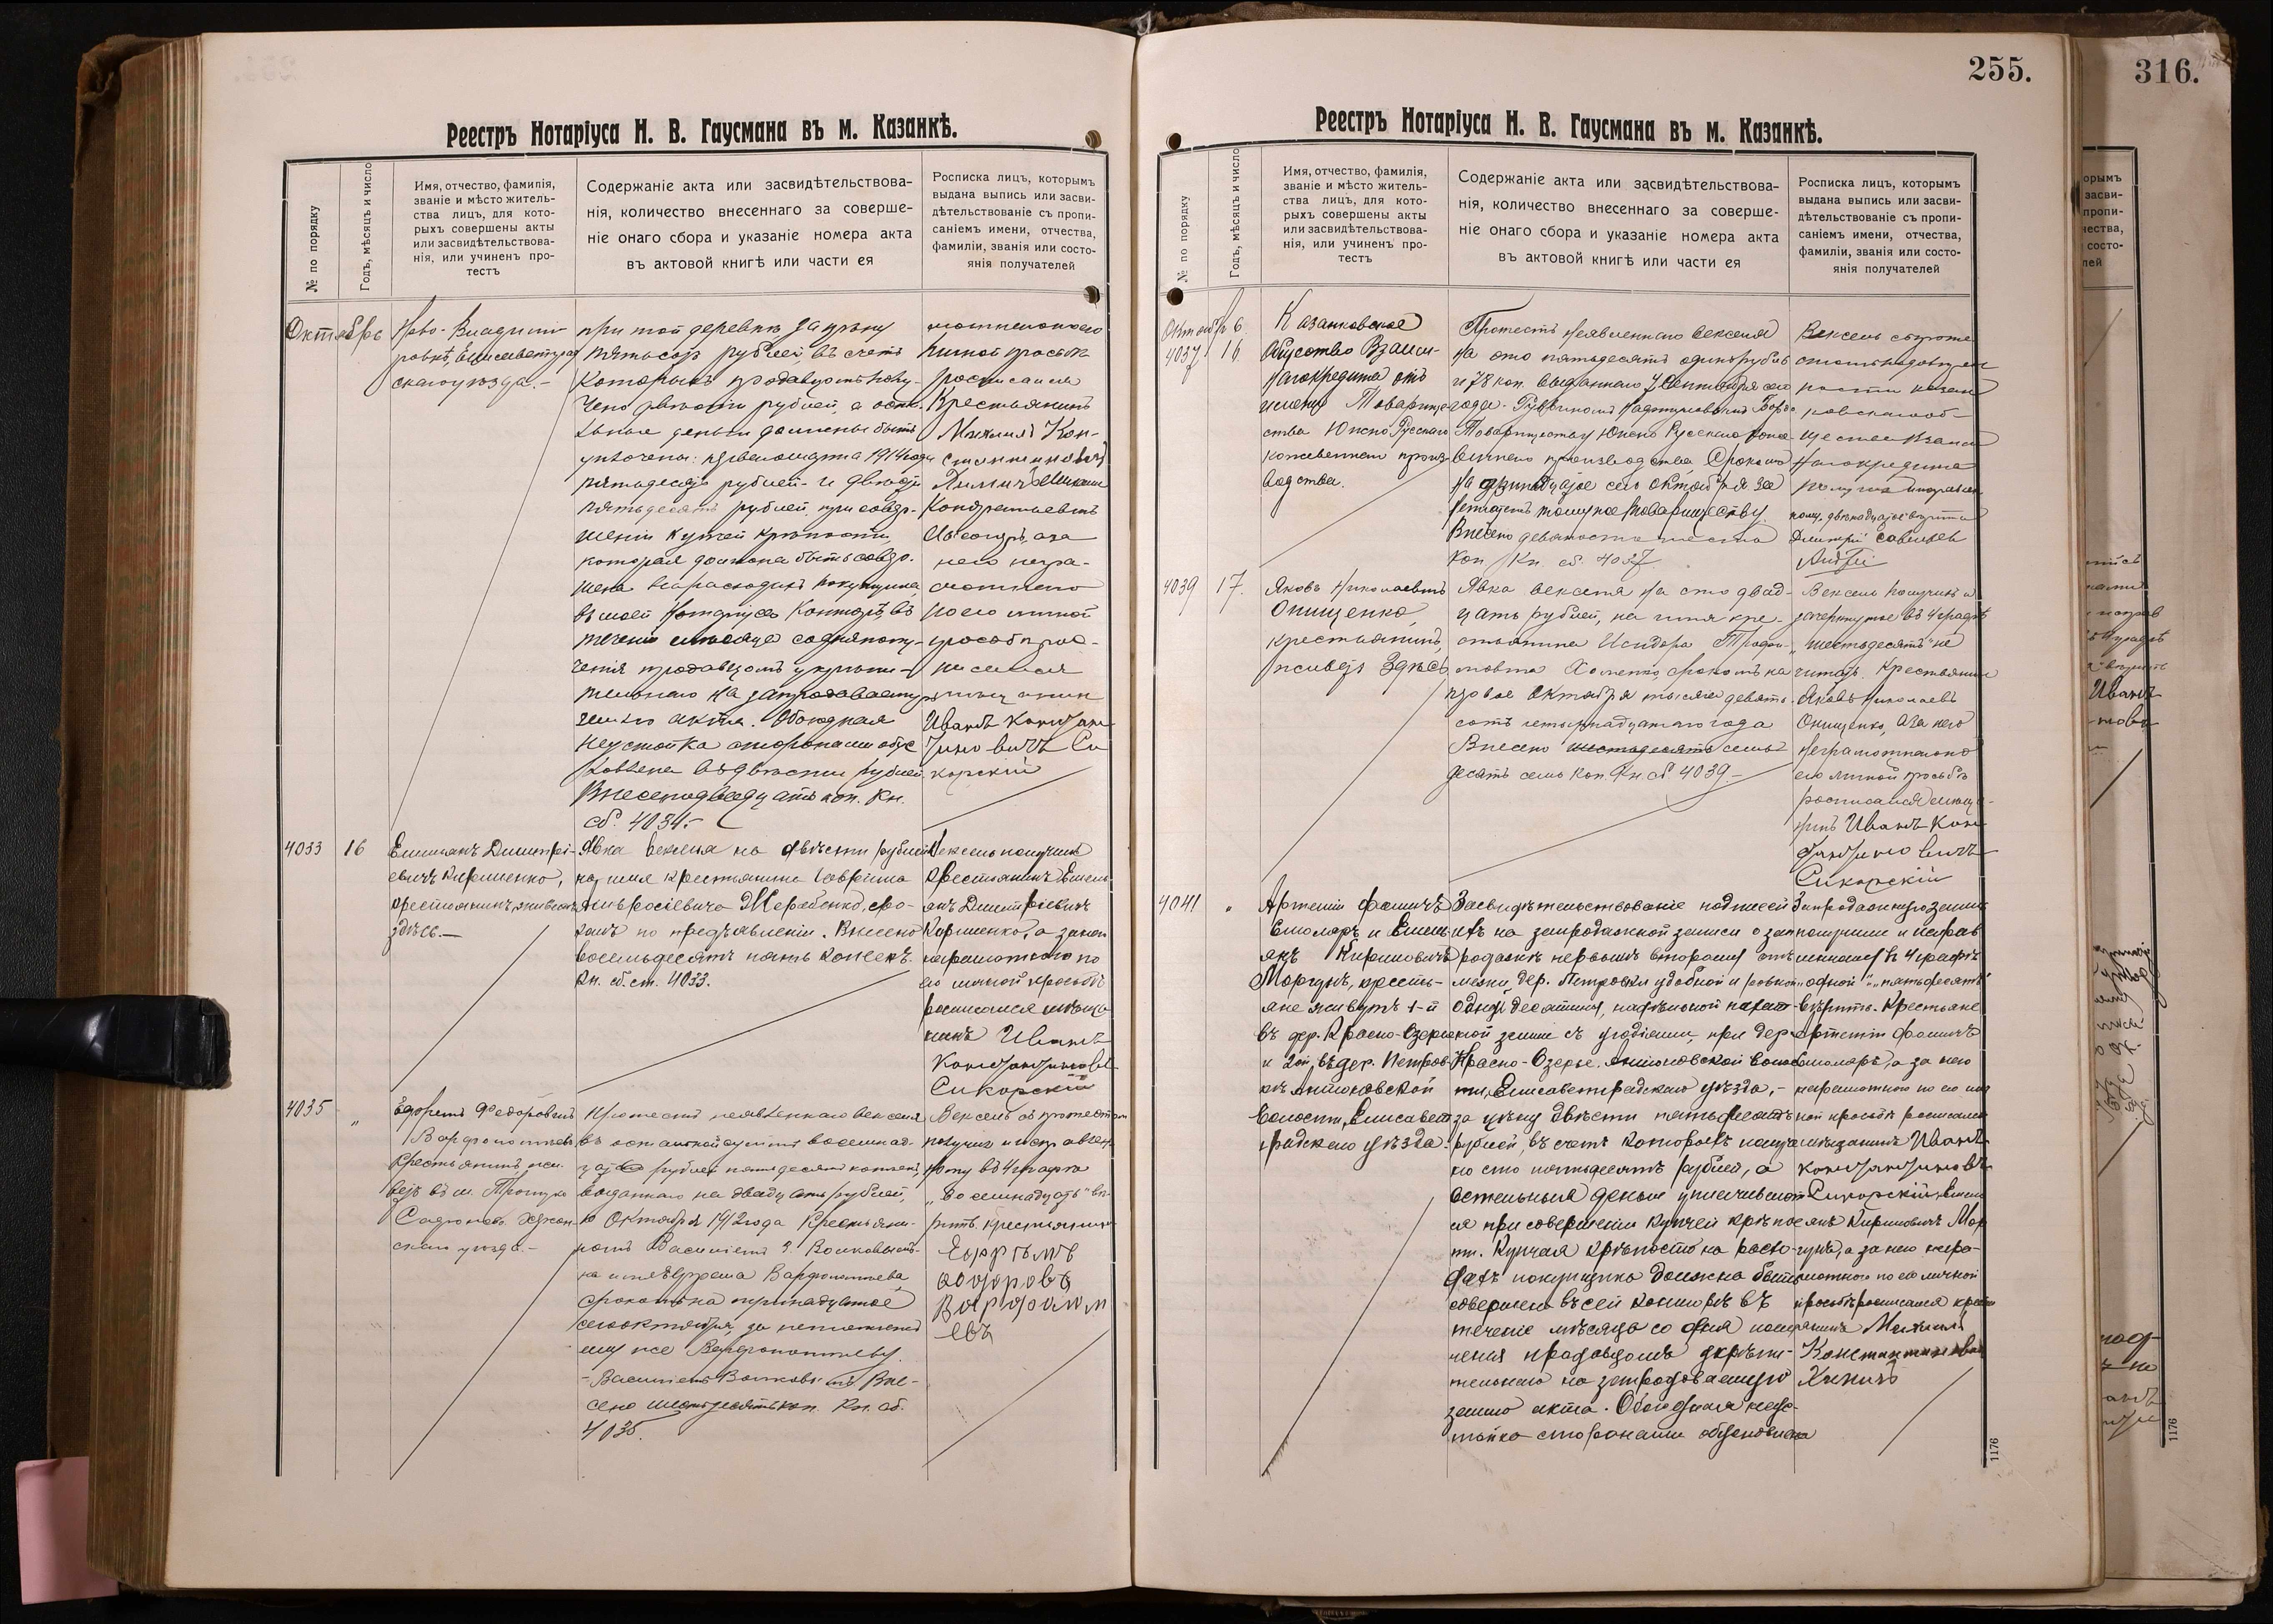 255.
316.
Реестръ Нотаріуса Н. В. Гаусмана въ м. Казанкѣ.
№ по порядку
Годъ, мѣсяцъ и число
Имя, отчество, фамилія,
званіе и мѣсто житель-
ства лицъ, для кото-
рыхъ совершены акты
или засвидѣтельствова-
нія, или учиненъ про-
тестъ
Содержаніе акта или засвидѣтельствова-
нія, количество внесеннаго за соверше-
ніе онаго сбора и указаніе номера акта
въ актовой книгѣ или части ея
Росписка лицъ, которымъ
выдана выпись или засви-
дѣтельствованіе съ пропи-
саніемъ имени, отчества,
фамиліи, званія или состо-
янія получателей
Октябрь
Ново-Владими-
ровкѣ, Елисаветград
скаго уѣзда.-
при той деревнѣ за цѣну
пятьсотъ рублей, въ счетъ
которыхъ продавцомъ полу-
чено двѣсти рублей, а осталь-
ныя деньги должны быть
уплочены: перваго марта 1914 года
пятьдесятъ рублей и двѣсти
пятьдесятъ рублей при совер-
шеніи купчей крѣпости,
которая должна быть совер-
шена на расходахъ покупщика
въ моей Нотаріуса Конторѣ, въ
теченіи мѣсяца со дня полу-
ченія продавцомъ укрѣпи-
тельнаго на запродаваемую
землю акта. Обоюдная
неустойка сторонами обус
ловлена въ двѣсти рублей.
Внесено двадцать коп. Кн.
сб. 4031.-
личной просьбѣ
росписался
Крестьянинъ
Михаилъ Кон-
стантиновичъ
Кондратьевичъ
а за
него негра-
мотнаго
по его личной
просьбѣ рос-
писался
Иванъ Констан
тиновичъ Си
корскій
4033
16
Емельянъ Дмитрі-
евичъ Кириченко,
крестьянинъ, живетъ
здѣсь.—
Явка векселя на двѣсти рублей
на имя крестьянина Гавріила
сро-
комъ по предъявленіи. Внесено
восемьдесятъ пять копѣекъ.
Кн. сб. ст. 4033.
Вексель получилъ
Крестьянинъ Емель
янъ Дмитріевичъ
Кириченко, а за него
неграмотнаго по
его личной просьбѣ
росписался мѣща
нинъ Иванъ
Константинови
Сикорскій
4035
"
Ефремъ Федоровичъ
Варфоломѣевъ
Крестьянинъ жи-
ветъ въ м. Троицко
Сафоново Херсон-
скаго уѣзда.-
Протестъ неявленнаго векселя
въ остальной суммѣ восемнад-
цать рублей пятьдесятъ копѣекъ,
выданнаго на двадцать рублей,
10 Октября 1912 года Крестьяни-
номъ Василіемъ Волковымъ
на имя Ефрема Варфоломѣева,
срокомъ на тринадцатое
сего октября, за неплатежъ
ему же Варфоломѣеву
- Василіемъ Волковымъ Вне-
сено шестьдесятъ коп. Кн. сб.
4035.
Вексель съ протестом
получилъ и исправлен-
ному въ 4 графѣ
„восемнадцать" вѣ-
рить. крестьянинъ
Ефремъ
Федоровъ
Варфолом
евъ
Реестръ Нотаріуса Н. В. Гаусмана въ м. Казанкѣ.
№ по порядку
Годъ, мѣсяцъ и число
Имя, отчество, фамилія,
званіе и мѣсто житель-
ства лицъ, для кото-
рыхъ совершены акты
или засвидѣтельствова-
нія, или учиненъ про-
тестъ
Содержаніе акта или засвидѣтельствова-
нія, количество внесеннаго за соверше-
ніе онаго сбора и указаніе номера акта
въ актовой книгѣ или части ея
Росписка лицъ, которымъ
выдана выпись или засви-
дѣтельствованіе съ пропи-
саніемъ имени, отчества,
фамиліи, званія или состо-
янія получателей
Октябрь
4037
16
Казанковское
Общество Взаим-
наго кредита отъ
имени Товарище-
ства Южно Русскаго
кожевеннаго произ-
водства.
Протестъ неявленнаго векселя
на сто пятьдесятъ одинъ рубль
и 78 коп. выданнаго 7 Сентября сего
года
Товариществу Южно Русскаго коже-
веннаго производства, Срокомъ
на двѣнадцатое сего Октября за
неплатежъ тому же Товариществу.
Внесено девяносто шесть
коп. Кн. сб. 4037
Вексель съ проте
стомъ по довѣрен
ности Казан
ковскаго об-
щества взаим
наго кредита
получилъ и исправлен
ному „двѣнадцатое" вѣрить
Дмитрій Савельев
4039
17.
Яковъ Николаевичъ
Онищенко,
крестьянинъ,
живетъ здѣсь
Явка векселя на сто двад-
цать рублей, на имя кре-
стьянина Исидора Трофи-
мовича Хоменко, срокомъ на
первое Октября тысяча девять
сотъ четырнадцатаго года
Внесено шестьдесятъ семь-
десять семь коп. Кн. сб. 4039.-
Вексель получилъ и
зачеркнутое въ 4 графѣ
„шестьдесятъ" не
читать. Крестьянинъ
Яковъ Николаевъ
Онищенко, а за него
неграмотнаго по
его личной просьбѣ
росписался мѣща-
нинъ Иванъ Кон
стантиновичъ
Сикорскій
4041
"
Артемій Фомичъ
Столяръ и Емель-
янъ Кириловичъ
Моргунъ, кресть-
яне живутъ 1-й
въ дер. Красно-Озерье
и 2й въ дер. Петров-
кѣ Антоновской
Волости, Елисавет-
градскаго уѣзда.
Засвидѣтельствованіе подписей
ихъ на запродажной записи о зап
родажѣ первымъ второму
дер. Петровки удобной и ровной
одной десятины, надѣльной
земли съ угодіями, при дер.
Красно-Озерье, Антоновской волос
ти, Елисаветградскаго уѣзда, -
за цѣну двѣсти пятьдесятъ
рублей, въ счетъ которыхъ получе
но сто пятьдесятъ рублей, а
остальныя деньги уплачивают
ся при совершеніи купчей крѣпос
ти. Купчая крѣпость на расхо-
дахъ покупщика должна быть
совершена въ сей конторѣ въ
теченіе мѣсяца со дня полу
ченія продавцомъ укрѣпи-
тельнаго на запродаваемую
землю акта. Обоюдная неус-
тойка сторонами обусловлена
Запродажную запись
получили и исправ
ленному въ 4 графѣ
„одной" „пятьдесятъ"
вѣрить. Крестьяне
Артемій Фомичъ
Столяръ, а за него
неграмотнаго по его лич
ной просьбѣ росписался
мѣщанинъ Иванъ
Константиновъ
Сикорскій, Емель
янъ Кириловичъ Мор
гунъ, а за него негра-
мотнаго по его личной
просьбѣ росписался крест
янинъ Михаилъ
Константинови
1176
1176